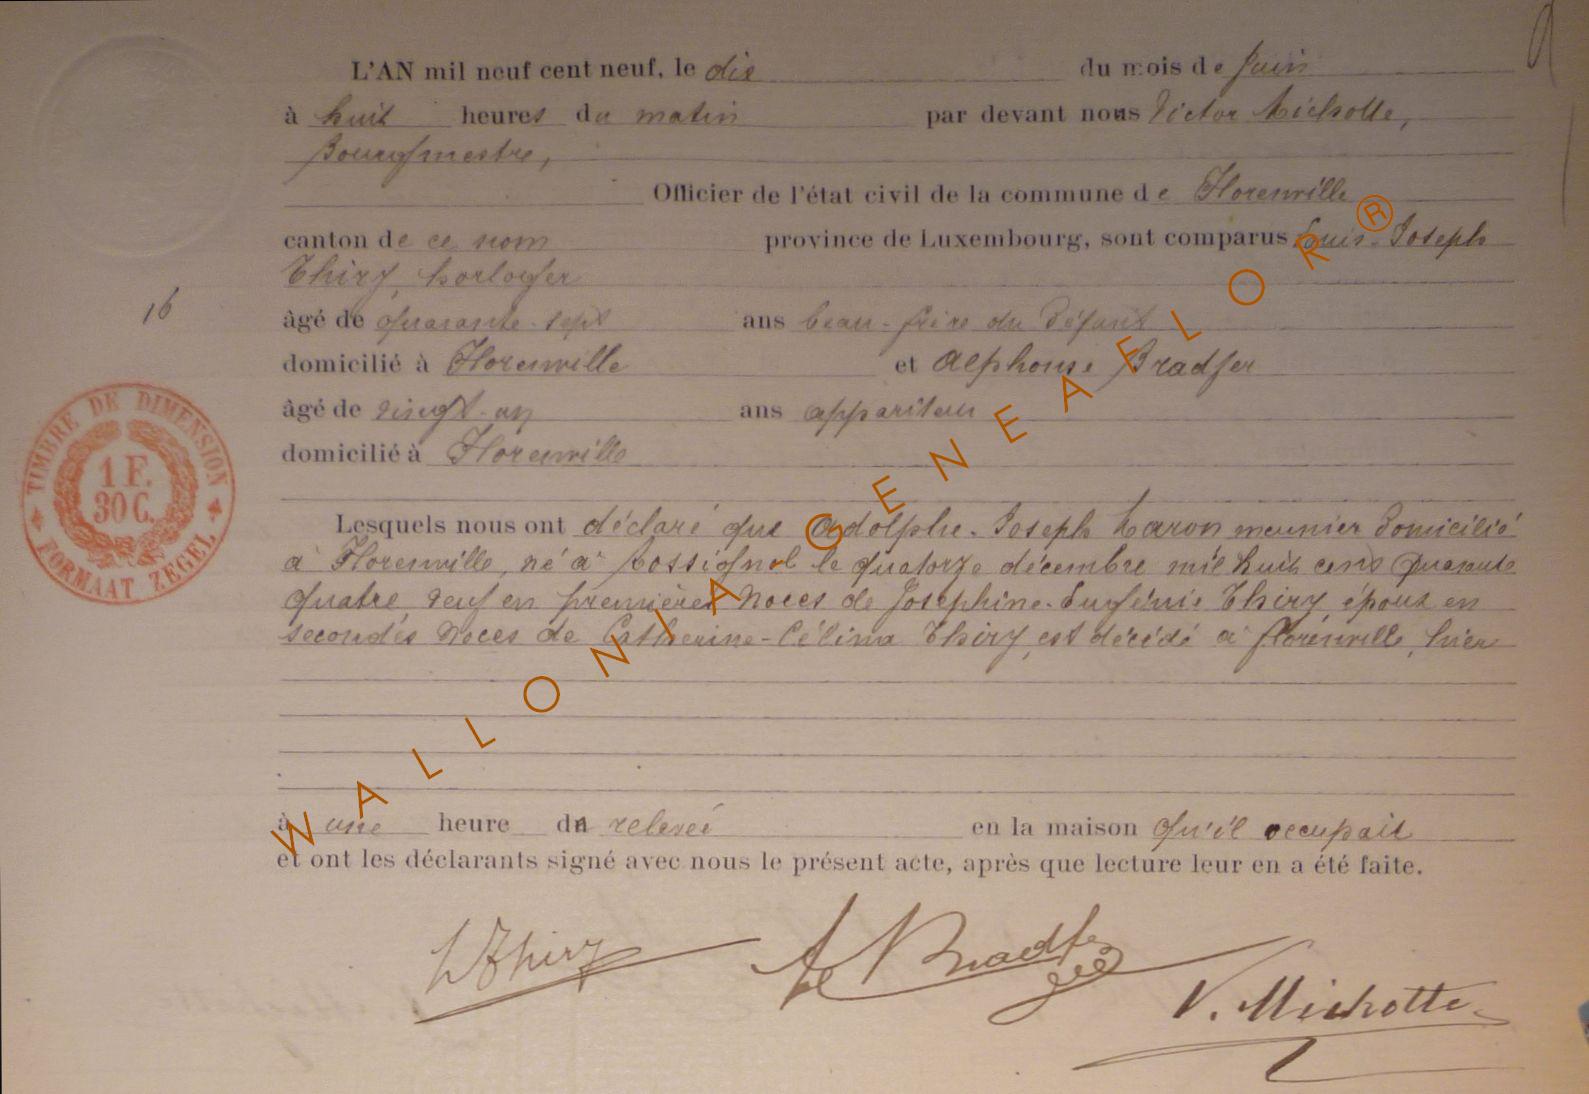 L'AN mil neuf cent neuf, le dix du mois de Juin
à huit heures du matin par devant nous Victor Michotte,
Bourgmestre,
Officier de l'état civil de la commune de Florenville
canton de ce nom province de Luxembourg, sont comparus Louis-Joseph
Thiry, horloger
16
âgé de quarante-sept ans beau-frère du défunt
domicilié à Florenville et Alphonse Bradfer
âgé de vingt-un ans appariteur
domicilié à Florenville
TIMBRE DE DIMENSION
1 F.
30 C.
FORMAAT ZEGEL
Lesquels nous ont déclaré que Adolphe-Joseph Laron meunier domicilié
à Florenville, né à Rossignol le quatorze décembre mil huit cent quarante
quatre, veuf en premières noces de Joséphine-Eugénie Thiry époux en
secondes noces de Catherine-Célina Thiry, est décédé à Florenville, hier
à une heure de relevée en la maison qu'il occupait
et ont les déclarants signé avec nous le présent acte, après que lecture leur en a été faite.
L Thiry Al Bradfer
V. Michotte
WALLONIA GENEAFLOR®